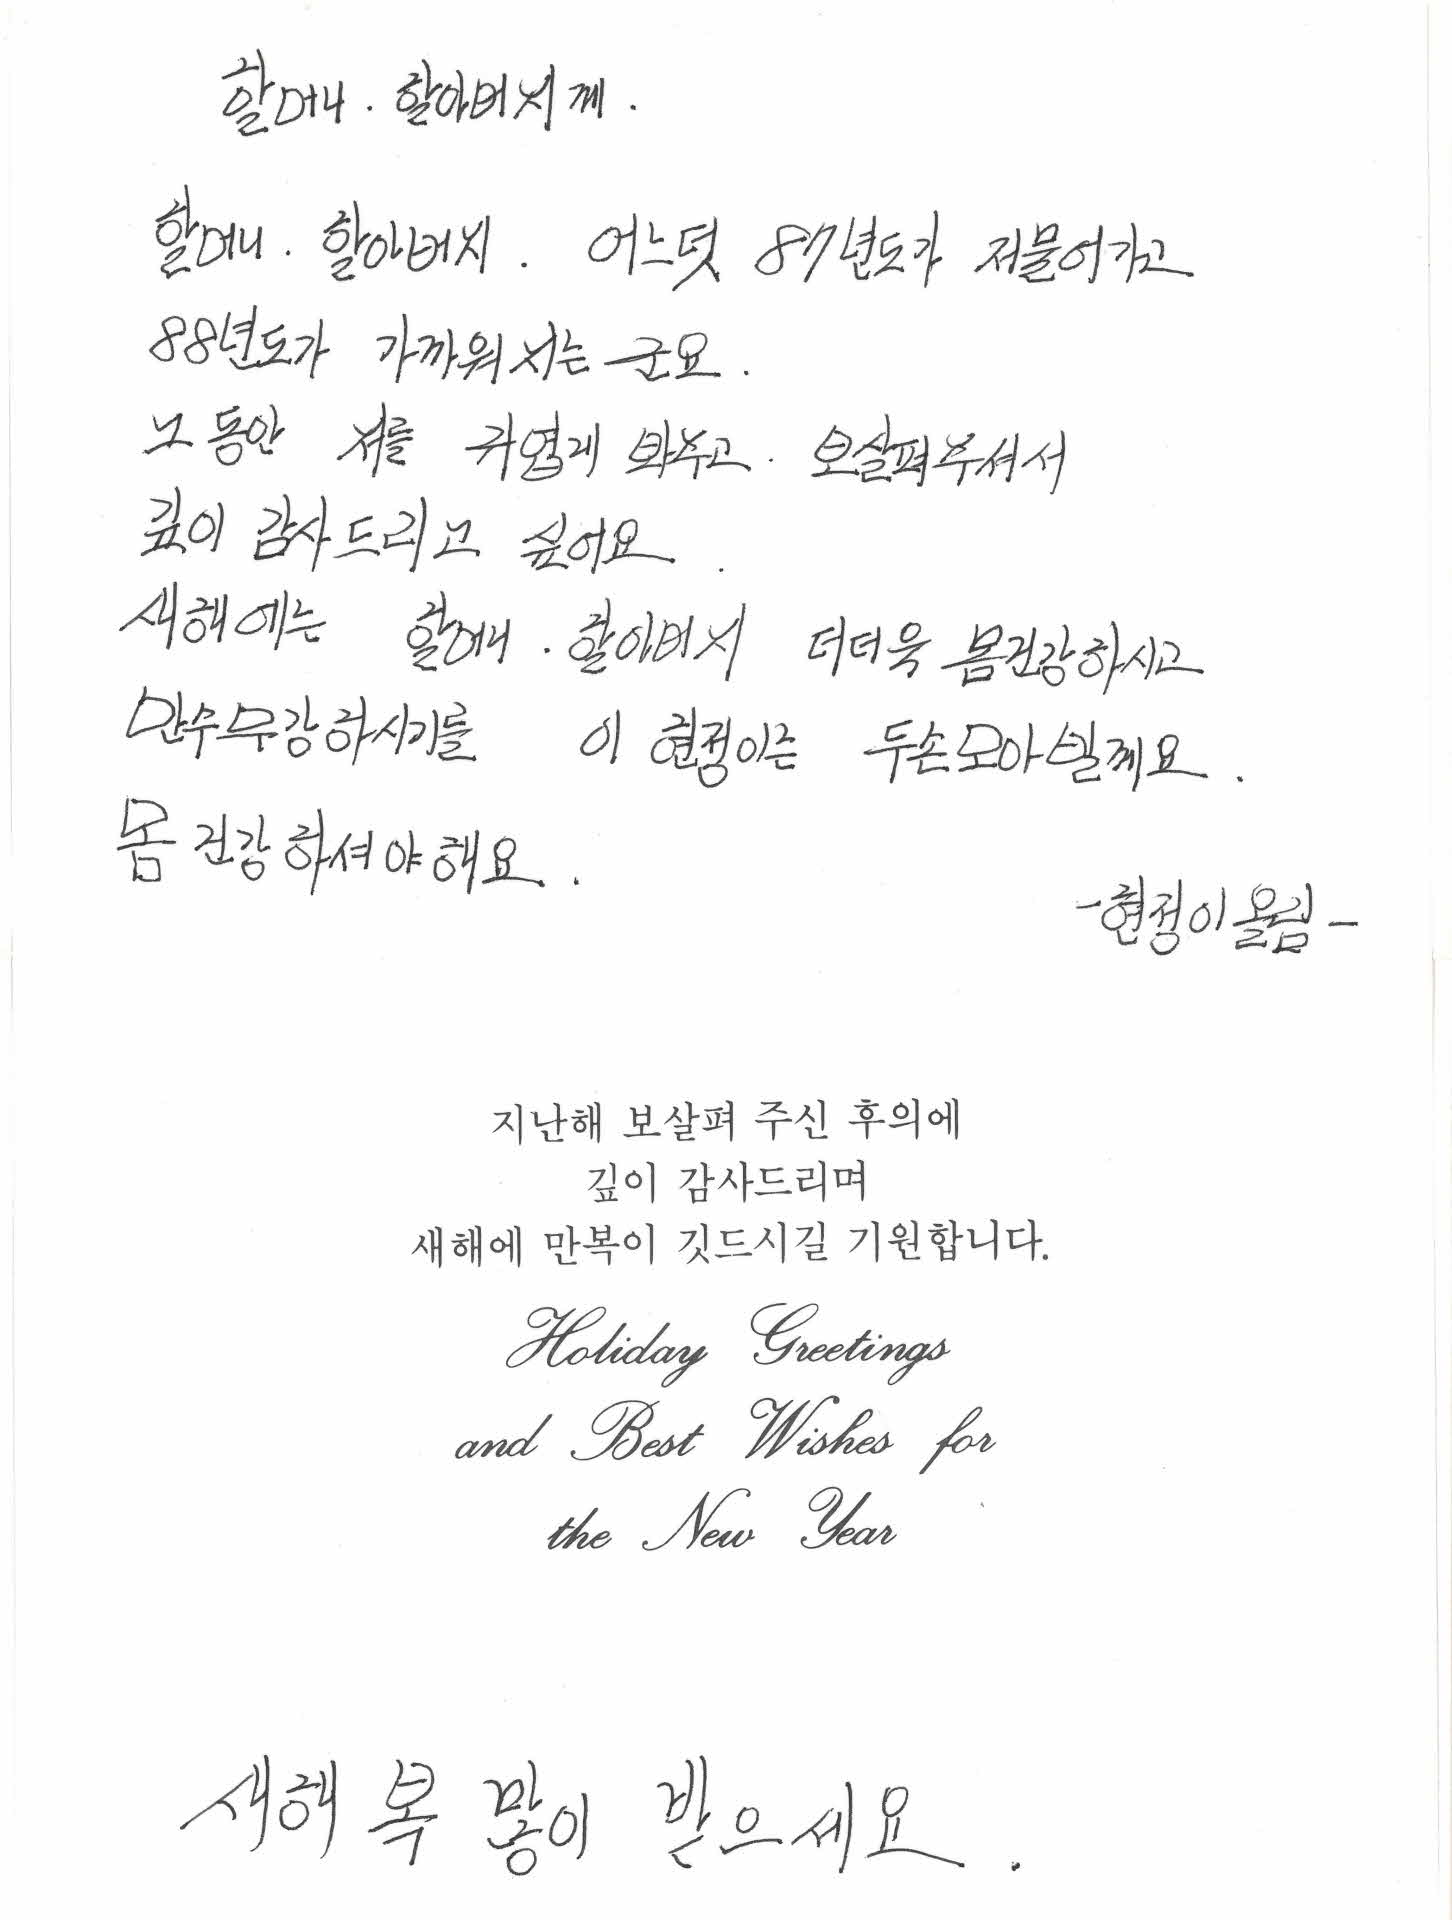 할머니. 할아버지께.
할머니. 할아버지. 어느덧 87년도가 저물어가고
88년도가 가까워지는군요.
그동안 저를 귀엽게 봐주고. 보살펴주셔서
깊이 감사드리고 싶어요.
새해에는 할머니. 할아버지 더더욱 몸건강하시고
만수무강하시기를 이 현정이는 두손모아 빌께요.
몸 건강하셔야해요.
-현정이올림-
지난해 보살펴 주신 후의에
깊이 감사드리며
새해에 만복이 깃드시길 기원합니다.
Holiday Greetings
and Best Wishes for
the New Year
새해 복 많이 받으세요.